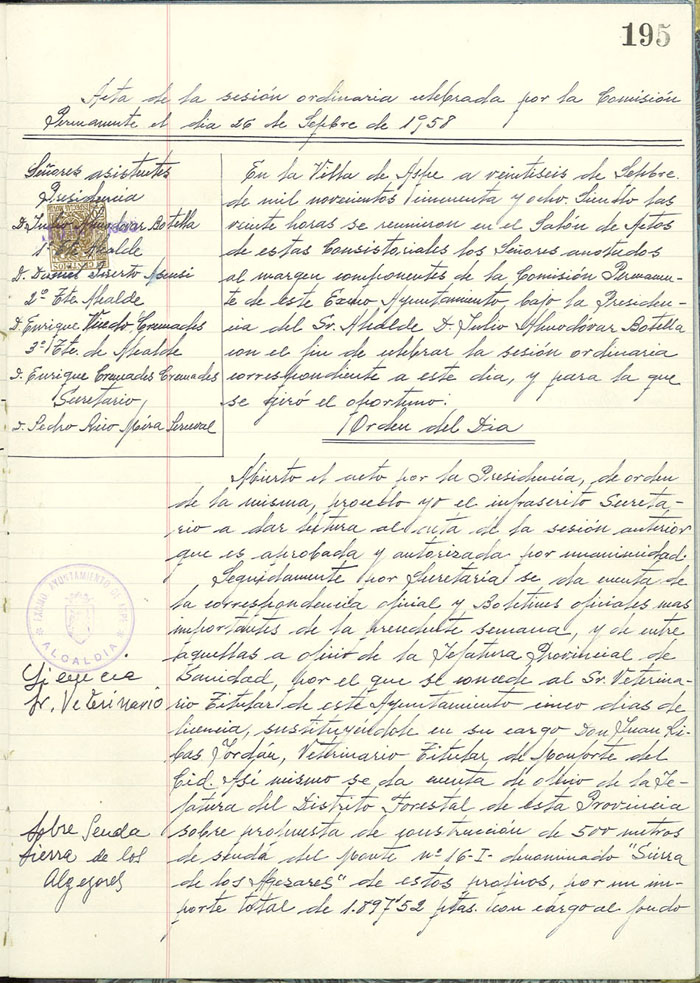 195
Acta de la sesión ordinaria celebrada por la Comisión
Permanente el dia 26 de Sepbre de 1958
Señores asistentes
Presidencia
D. Julio Almodovar Botella
1º Tte Alcalde
D. Daniel Disert​o Asensi
2º Tte. Alcalde
D. Enrique Cremades
3º Tte. de Alcalde
D. Enrique Cremades Cremades
Secretario,
D. Pedro Mira
En la Villa de Aspe a veintiseis de Sepbre.
de mil novecientos cincuenta y ocho. Siendo las
veinte horas se reunieron en el Salón de Actos
de estas Consistoriales los Señores anotados
al margen componentes de la Comisión Permanen-
te de este Excmo Ayuntamiento, bajo la Presiden-
cia del Sr. Alcalde D. Julio Almodóvar Botella
con el fin de celebrar la sesión ordinaria
correspondiente a este dia, y para la que
se giró el oportuno:
Orden del Dia
Abierto el acto por la Presidencia, de orden
de la misma, procedo yo el infrascrito Secreta-
rio a dar lectura al acta de la sesión anterior
que es aprobada y autorizada por unanimidad.
Seguidamente por Secretaría se da cuenta de
la correspondencia oficial y Boletines oficiales mas
importantes de la precedente semana, y de entre
aquellas a oficio de la Jefatura Provincial de
Sanidad, por el que se concede al Sr. Veterina-
rio Titular de este Ayuntamiento cinco dias de
licencia, sustituyéndole en su cargo Don Juan Ri-
bas Jordán, Veterinario Titular de Monforte del
Cid. Asi mismo se da cuenta de oficio de la Je-
fatura del Distrito Forestal de esta Provincia
sobre propuesta de construcción de 500 metros
de senda del Monte nº 16-I- denominado "Sierra
de los Algezares" de estos propios, por un im-
porte total de 1.897'52 ptas. con cargo al fondo
EXCMO. AYUNTAMIENTO DE ASPE
ALCALDIA
Licencia
Sr. Veterinario
Sobre Senda
Sierra de los
Algezares